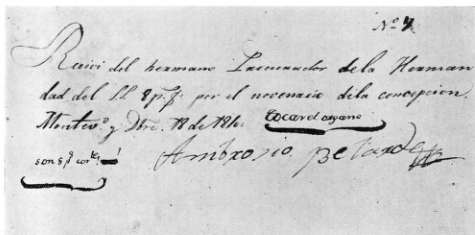 Nº 7
Recivi del hermano Procurador de la Herman
dad del S.S. 8 p.s f.s por el novenario de la concepcion.
Montev.º y Dre. 18 de 181
tocar el organo
son 8 p.s cor.tes
Ambrosio Belarde